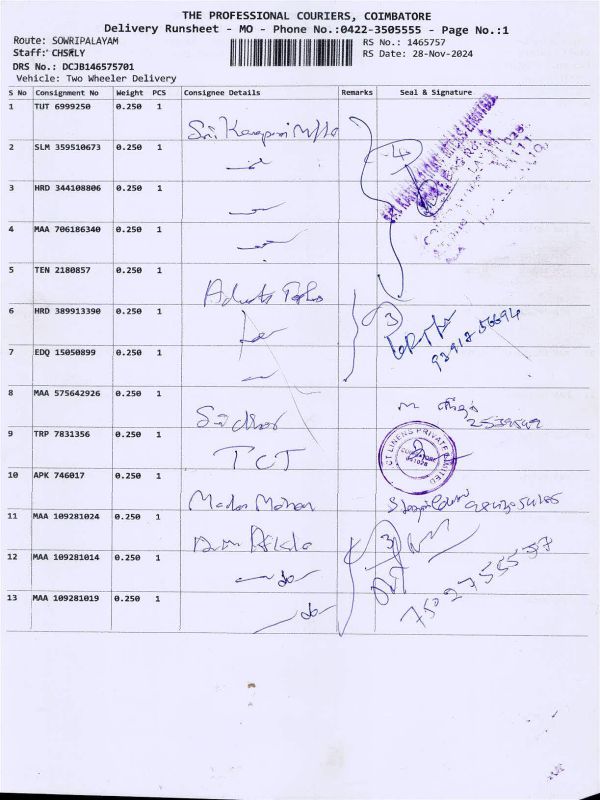 THE PROFESSIONAL COURIERS, COIMBATORE
Delivery Runsheet - MO - Phone No.:0422-3505555 - Page No.:1
Route: SOWRIPALAYAM
RS No.: 1465757
Staff: CHSRLY
RS Date: 28-Nov-2024
DRS No.: DCJB146575701
Vehicle: Two Wheeler Delivery
S No Consignment No Weight PCS Consignee Details Remarks Seal & Signature
1 TUT 6999250 0.250 1
Sri
2 SLM 359510673 0.250 1
4
3 HRD 344108806 0.250 1
4 MAA 706186340 0.250 1
5 TEN 2180857 0.250 1
6 HRD 389913390 0.250 1
3
7 EDQ 15050899 0.250 1
8 MAA 575642926 0.250 1
Sridhar
9 TRP 7831356 0.250 1
TCT
CT LINENS PRIVATE LIMITED
COIMBATORE
641028
10 APK 746017 0.250 1
Madan Mohan
11 MAA 109281024 0.250 1
3
12 MAA 109281014 0.250 1
do
13 MAA 109281019 0.250 1
do